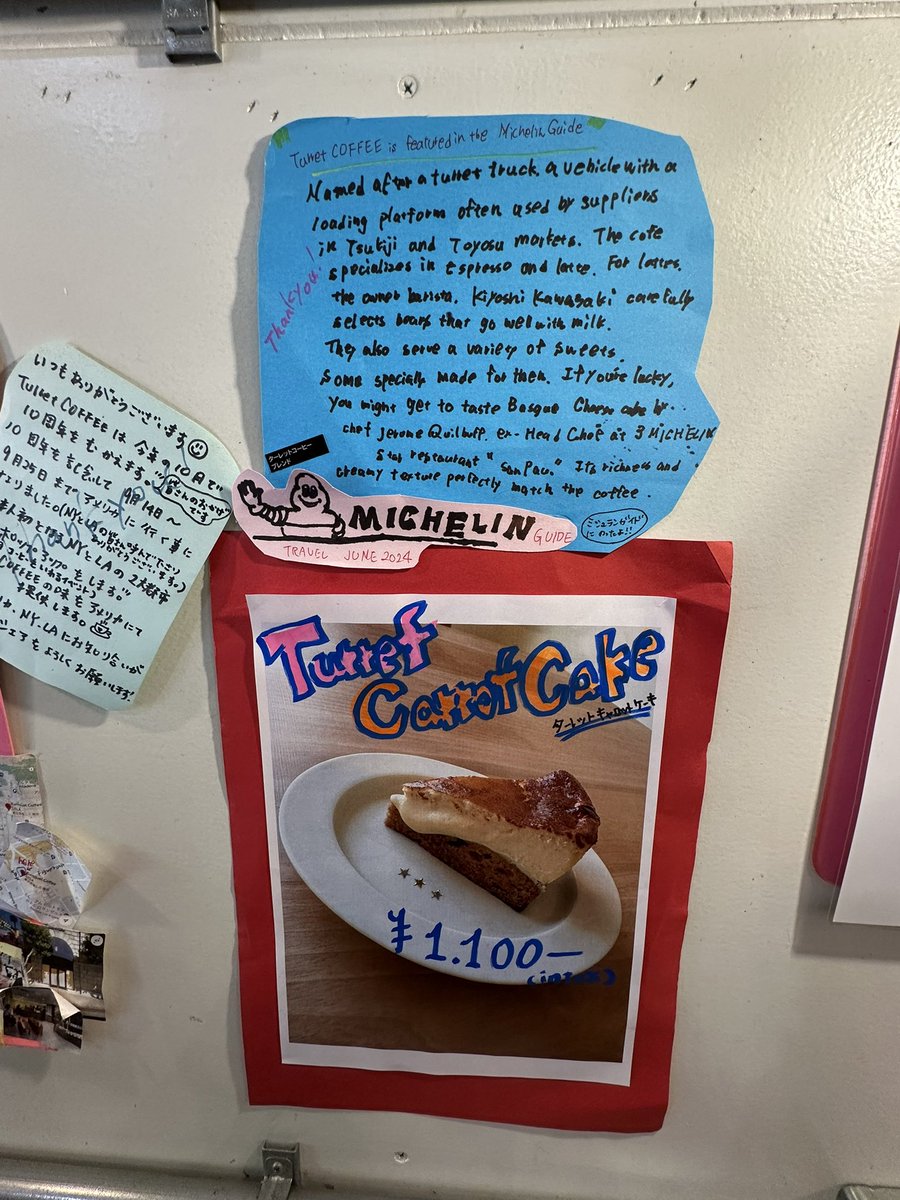 Turret COFFEE is featured in the Michelin Guide
Named after a turret truck a vehicle with a
loading platform often used by suppliers
in Tsukiji and Toyosu markets. The cafe
specializes in Espresso and latte. For lattes,
the owner barista, Kiyoshi Kawasaki carefully
selects beans that go well with milk.
They also serve a variety of sweets.
Some specially made for them. If you're lucky,
you might get to taste Basque Cheese cake by
chef Jerome Quilbuff. ex-Head Chef at 3 MICHELIN
star restaurant "San Pau." Its richness and
creamy texture perfectly match the coffee.
Thank you!
ターレットコーヒー
ブレンド
MICHELIN GUIDE
TRAVEL JUNE 2024
ミシュランガイド
にのったよ!!
いつもありがとうございます
Turret COFFEE は 今年 10月で
10周年をむかえます。
皆さんのおかげ
です
10周年を記念して 9月14日~
9月25日まで アメリカに行く事に
なりました
NYとLAの2大都市
COFFEEの味をアメリカにて
提供します。
NY.LAにお知り合いが
シェアをよろしくお願いします!
Turret
Carrot Cake
ターレットキャロットケーキ
¥1.100-
(in tax)